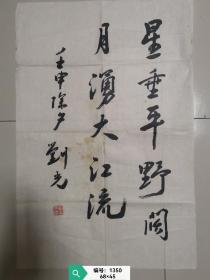 星垂平野阔
月湧大江流
壬申除夕 劉光
编号：1350
68×45